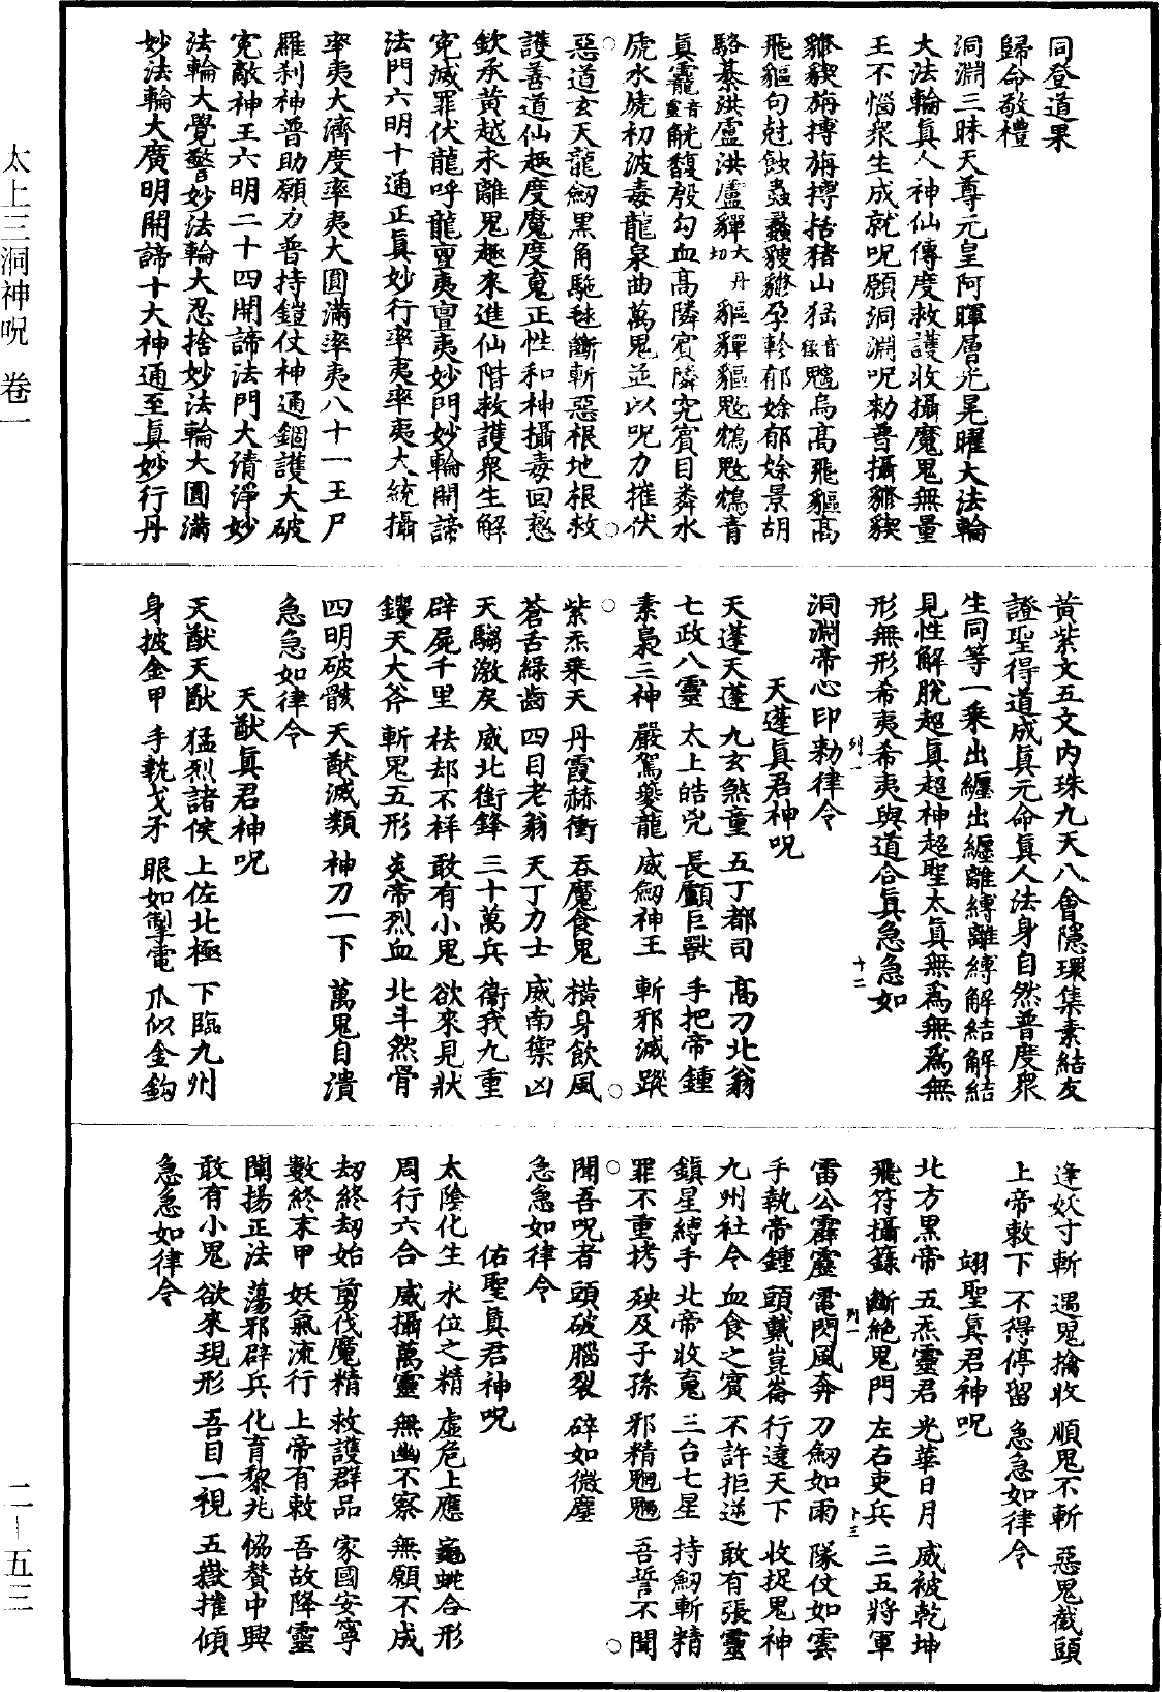 同登道果
歸命敬禮
洞淵三昧天尊元皇阿暉層光晃曜大法輪
大法輪真人神仙傳度救護收攝魔鬼無量
王不惱衆生成就呪願洞淵呪勑普攝貅貎
旃搏旃搏括猪山猛音𩲃烏高飛貙高
飛貙句尅蝕蟲蠡貅孕軫郁嵞郁嵞景胡
駱綦洪盧洪盧貚大丹切貙貚貙鴆鴆音
真音馥殷勾血高隣賓隣究賔目粦水
虎水虓初波毒龍泉曲萬鬼並以呪力摧伏
惡道玄天龍劒黒角駞毬斷斬惡根地根救
護善道仙趣度魔度鬼正性和神攝毒回愆
欽承黃越永離鬼趣來進仙階救護衆生解
寃滅罪伏龍呼龍亶夷亶夷妙門妙輪開諦
法門六明十通正真妙行率夷率夷大統攝
率夷大濟度率夷大圓滿率夷八十一王尸
羅刹神普助願力普持鎧仗神通錮護大破
寃敵神王六明二十四開諦法門大清淨妙
法輪大覺警妙法輪大忍捨妙法輪大圓滿
妙法輪大廣明開諦十大神通至真妙行丹
黃紫文五文內珠九天八會隱環集素結友
證聖得道成真元命真人法身自然普度衆
生同等一乘出纏出纏離縛離縛解結解結
見性解脫超真超神超聖太真無爲無爲無
形無形希夷希夷與道合真急急如
洞淵帝心印勑律令
天蓬真君神呪
天蓬天蓬 九玄煞童 五丁都司 高刀北翁
七政八靈 太上皓兇 長顱巨獸 手把帝鍾
素梟三神 嚴駕夔龍 威劒神王 斬邪滅蹤
紫炁乘天 丹霞赫衝 吞魔食鬼 橫身飲風
蒼舌綠齒 四目老翁 天丁力士 威南禦凶
天騶激戾 威北銜鋒 三十萬兵 衞我九重
辟屍千里 祛却不祥 敢有小鬼 欲來見狀
钁天大斧 斬鬼五形 炎帝烈血 北斗然骨
四明破骸 天猷滅類 神刀一下 萬鬼自潰
急急如律令
天猷真君神呪
天猷天猷 猛烈諸侯 上佐北極 下臨九州
身披金甲 手執戈矛 眼如掣電 爪似金鈎
逢妖寸斬 遇鬼擒收 順鬼不斬 惡鬼截頭
上帝敕下 不得停留 急急如律令
翊聖真君神呪
北方黒帝 五炁靈君 光華日月 威被乾坤
飛符攝籙 斷絕鬼門 左右吏兵 三五將軍
雷公霹靂 電閃風奔 刀劒如雨 隊仗如雲
手執帝鍾 頭戴崑崙 行達天下 收捉鬼神
九州社令 血食之賓 不許拒逆 敢有張靈
鎮星縛手 北帝收鬼 三台七星 持劒斬精
罪不重拷 殃及子孫 邪精魍魎 吾誓不聞
聞吾呪者 頭破腦裂 碎如微塵
急急如律令
佑聖真君神呪
太陰化生 水位之精 虛危上應 龜蛇合形
周行六合 威攝萬靈 無幽不察 無願不成
劫終劫始 剪伐魔精 救護群品 家國安寧
數終末甲 妖氣流行 上帝有敕 吾故降靈
闡揚正法 蕩邪辟兵 化育黎兆 恊賛中興
敢有小鬼 欲來現形 吾目一視 五嶽摧傾
急急如律令
太上三洞神呪 卷一
二—五三